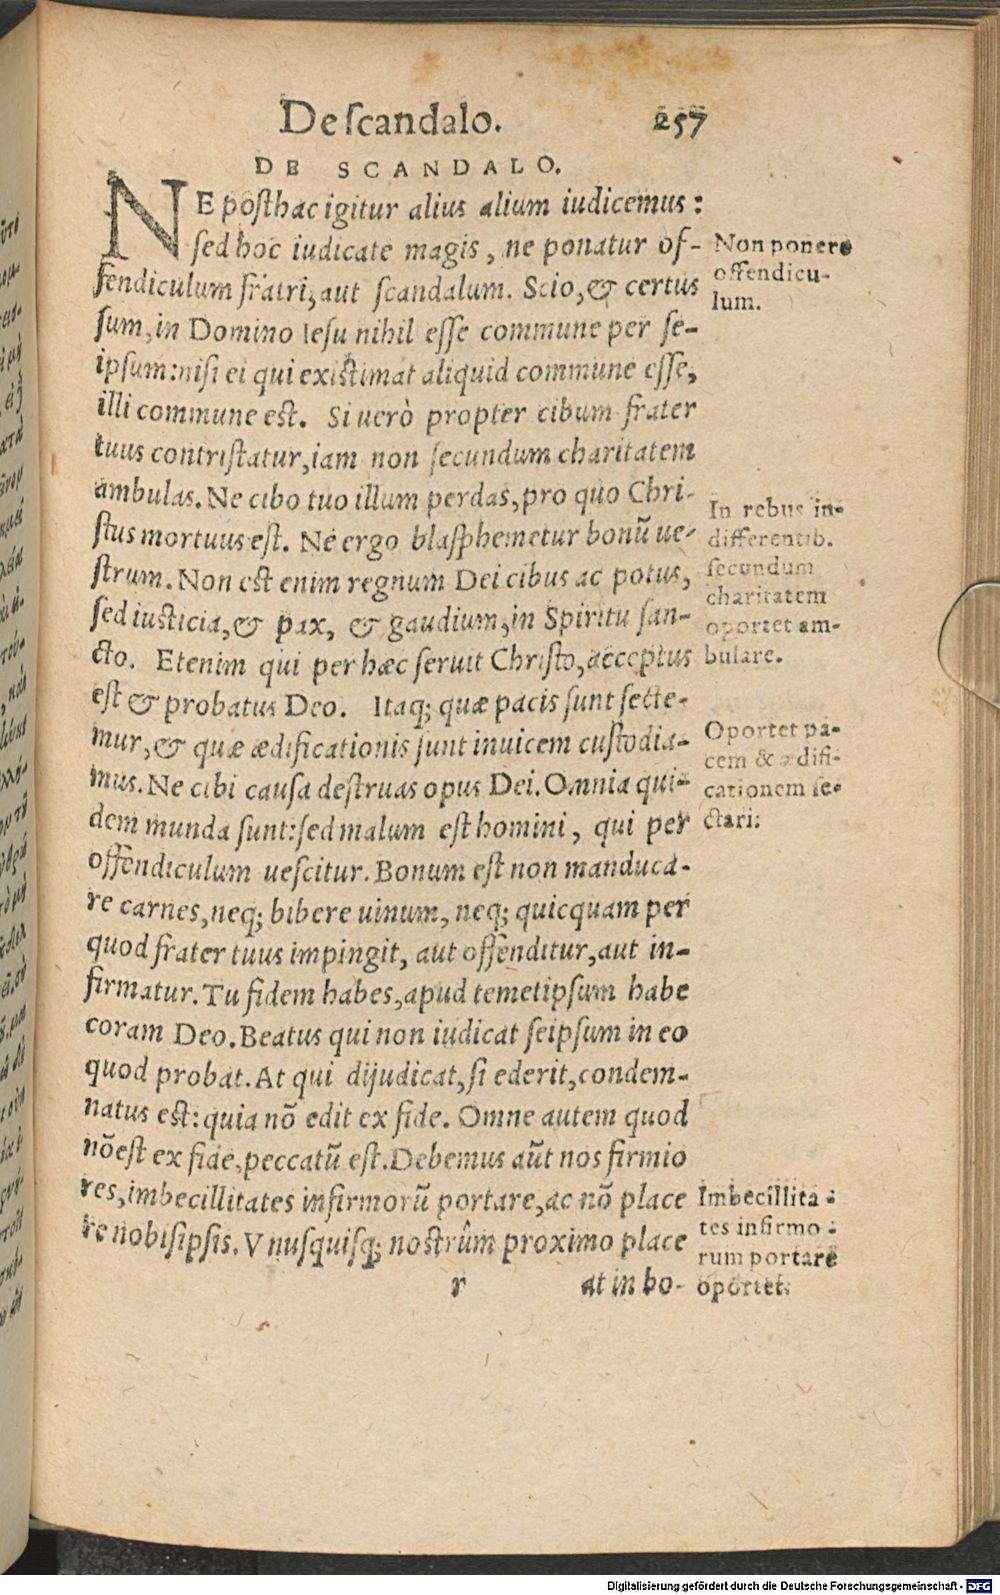 De scandalo. 257
DE SCANDALO.
NE posthac igitur alius alium iudicemus:
sed hoc iudicate magis, ne ponatur of-
fendiculum fratri, aut scandalum. Scio, & certus
sum, in Domino Iesu nihil esse commune per se-
ipsum: nisi ei qui existimat aliquid commune esse,
illi commune est. Si uerò propter cibum frater
tuus contristatur, iam non secundum charitatem
ambulas. Ne cibo tuo illum perdas, pro quo Chri-
stus mortuus est. Ne ergo blasphemetur bonū ue-
strum. Non est enim regnum Dei cibus ac potus,
sed iusticia, & pax, & gaudium, in Spiritu san-
cto. Etenim qui per hæc seruit Christo, acceptus
est & probatus Deo. Itaq; quæ pacis sunt secte-
mur, & quæ ædificationis sunt inuicem custodia-
mus. Ne cibi causa destruas opus Dei. Omnia qui-
dem munda sunt: sed malum est homini, qui per
offendiculum uescitur. Bonum est non manduca-
re carnes, neq; bibere uinum, neq; quicquam per
quod frater tuus impingit, aut offenditur, aut in-
firmatur. Tu fidem habes, apud temetipsum habe
coram Deo. Beatus qui non iudicat seipsum in eo
quod probat. At qui dijudicat, si ederit, condem-
natus est: quia nō edit ex fide. Omne autem quod
nō est ex fide, peccatū est. Debemus aūt nos firmio
res, imbecillitates infirmorū portare, ac nō place
re nobisipsis. Vnusquisq; nostrûm proximo place
r at in bo-
Non ponere
offendicu-
lum.
In rebus in-
differentib.
secundum
charitatem
oportet am-
bulare.
Oportet pa-
cem & ædifi-
cationem se-
ctari.
Imbecillita-
tes infirmo-
rum portare
oportet.
Digitalisierung gefördert durch die Deutsche Forschungsgemeinschaft - DFG